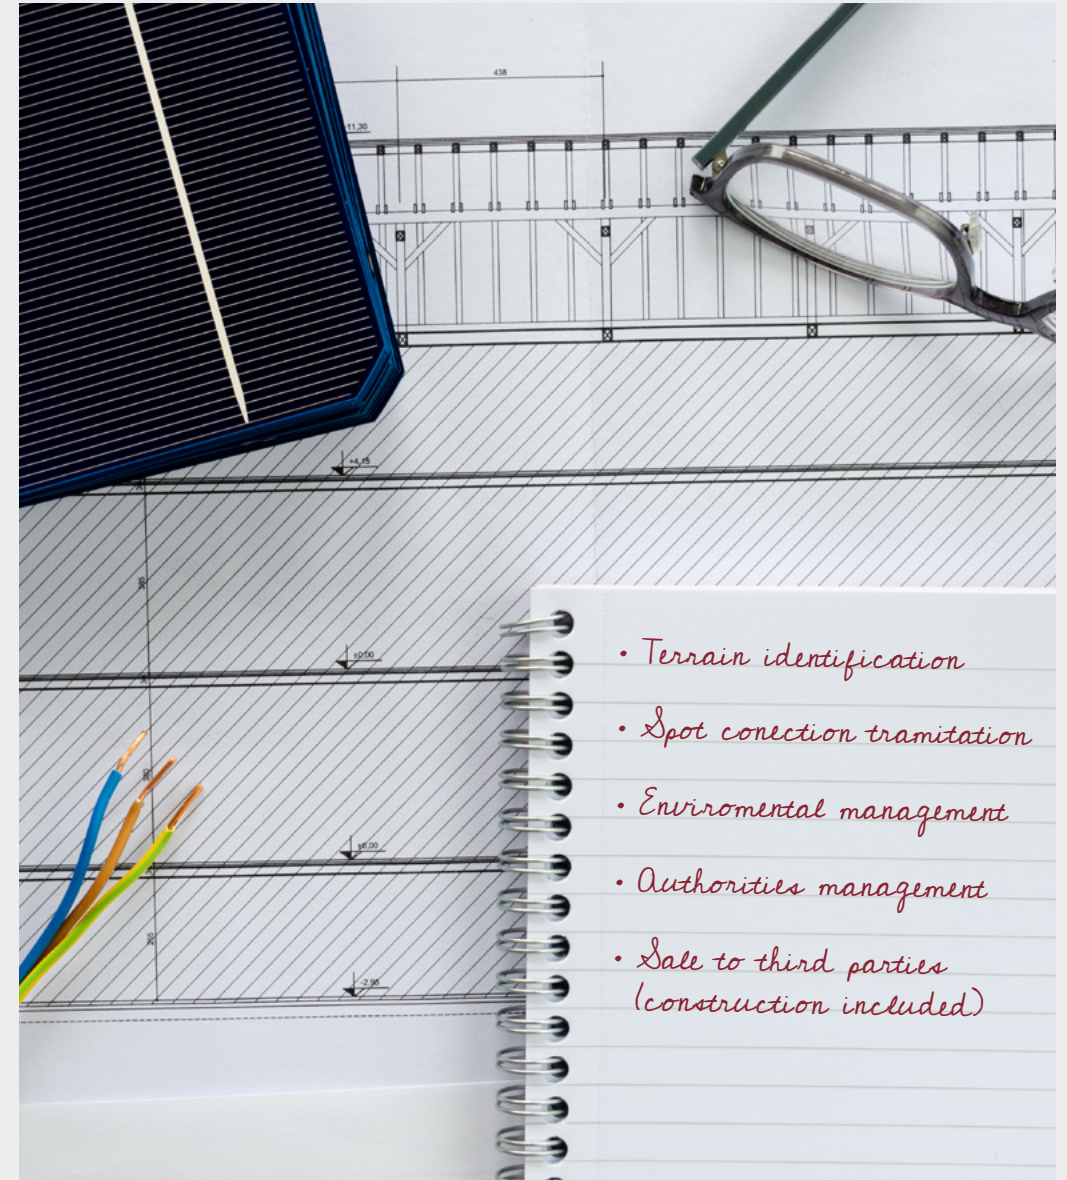 438
11,30
+4,15
365
±0,00
380
±0,00
265
-2,95
• Terrain identification
• Spot conection tramitation
• Enviromental management
• Authorities management
• Sale to third parties
(construction included)